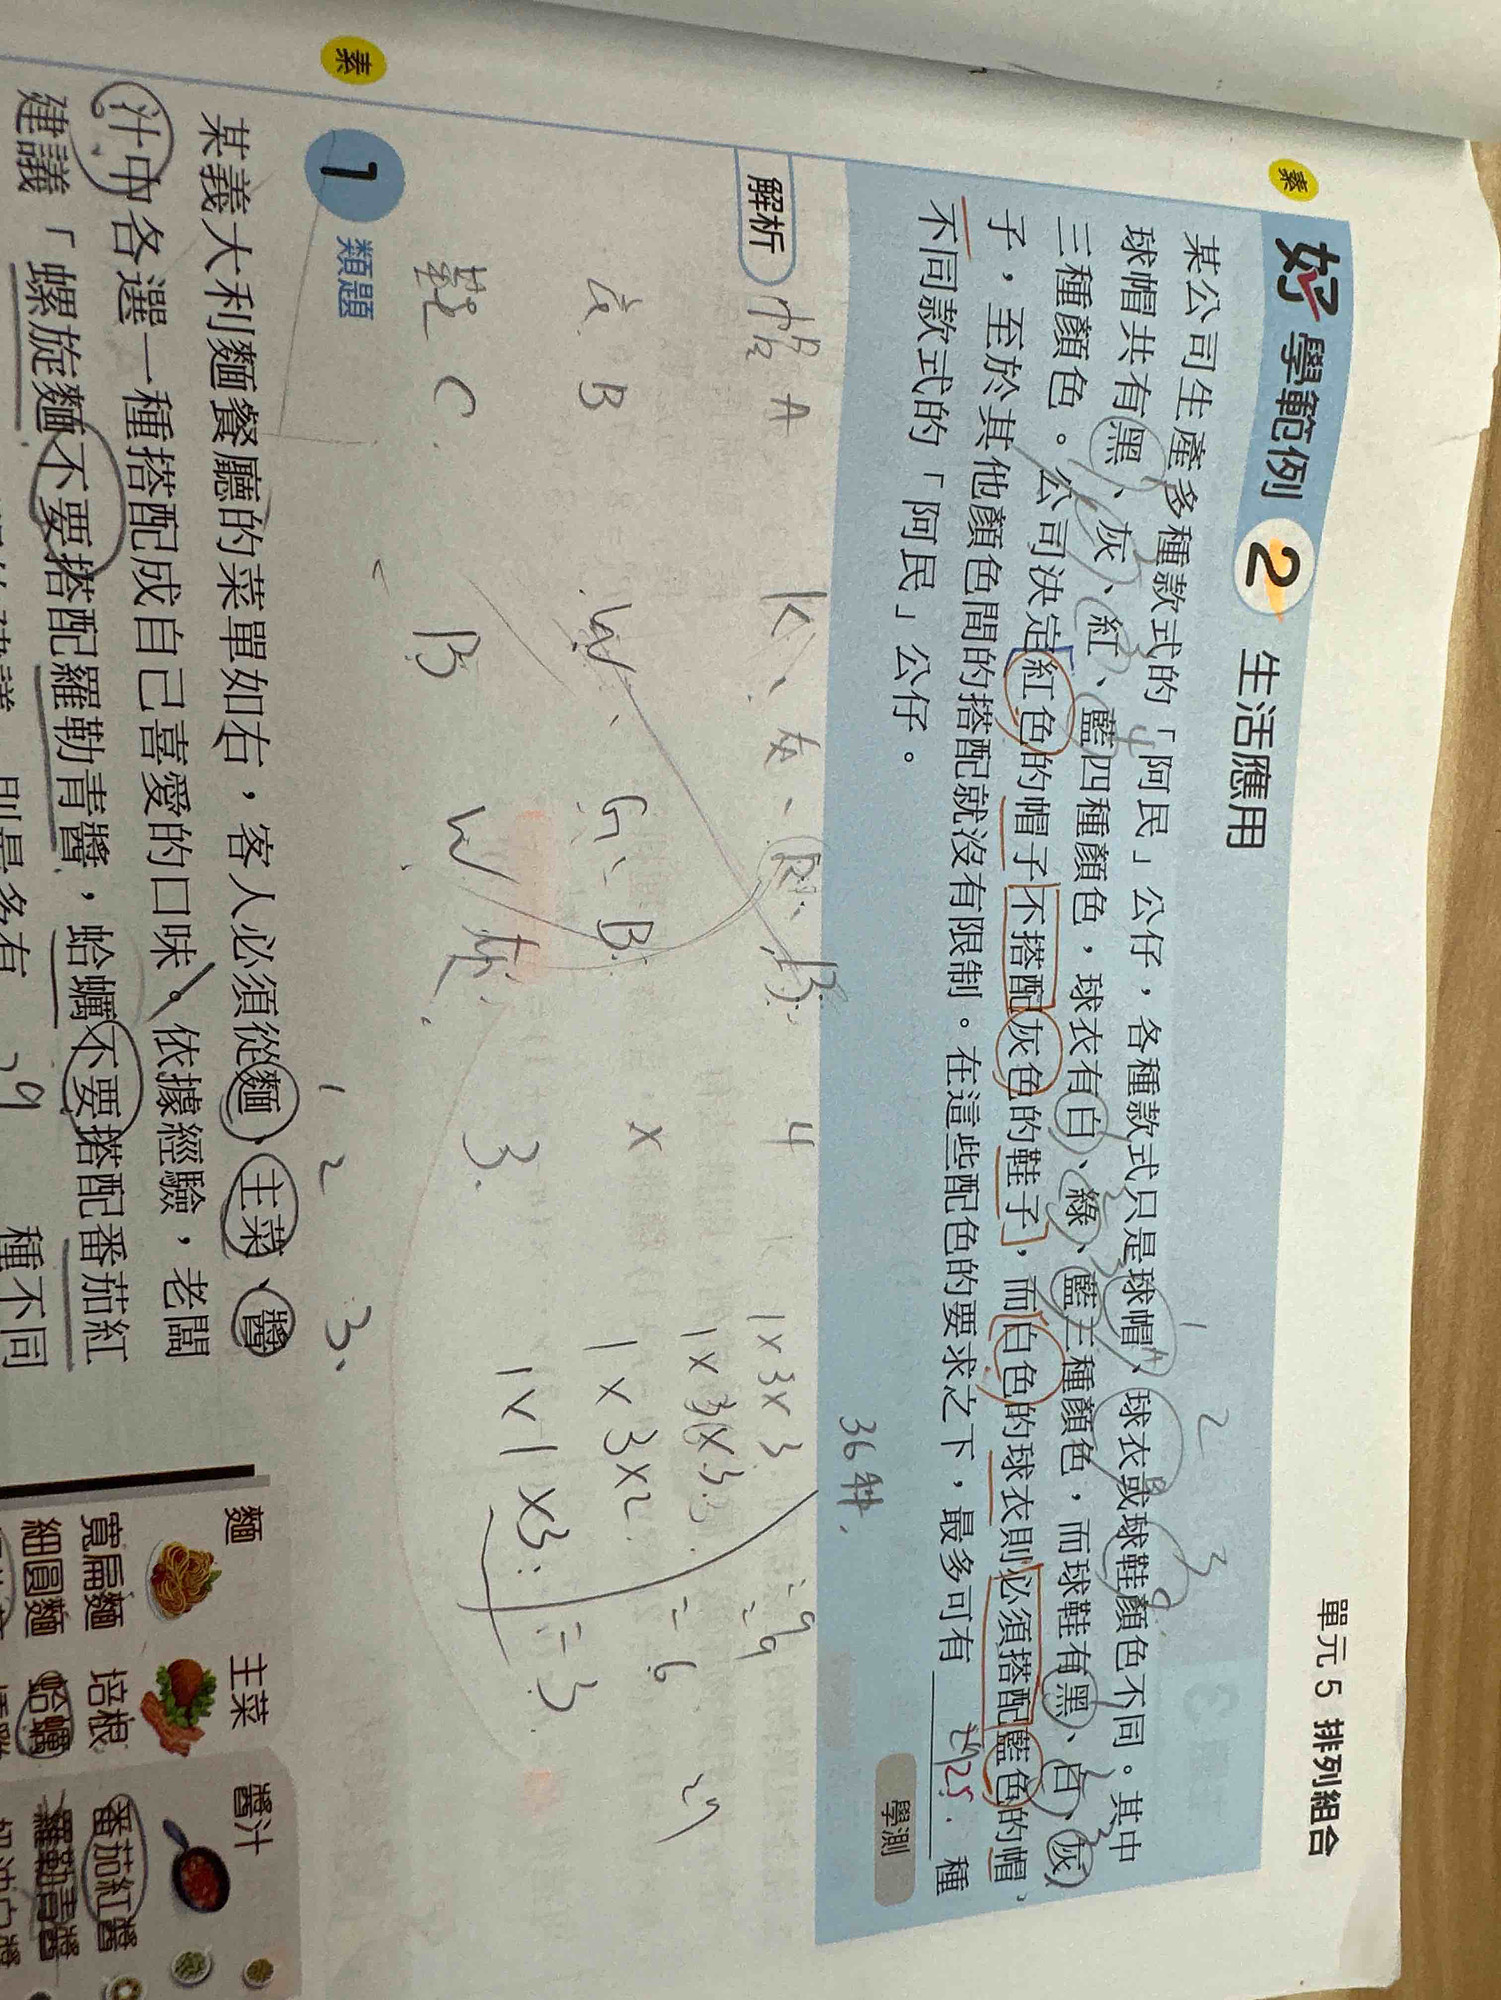 單元 5 排列組合
素
好學範例 2 生活應用
1 2 3
某公司生產多種款式的「阿民」公仔，各種款式只是球帽、球衣或球鞋顏色不同。其中
球帽共有黑、灰、紅、藍四種顏色，球衣有白、綠、藍三種顏色，而球鞋有黑、白、灰
三種顏色。公司決定紅色的帽子不搭配灰色的鞋子，而白色的球衣則必須搭配藍色的帽
子，至於其他顏色間的搭配就沒有限制。在這些配色的要求之下，最多可有 25 種
不同款式的「阿民」公仔。
學測
36種
解析
帽 A K、灰、R、B 4 1x3x3 =9
1x3x3 =9
衣 B W、G、B x 1x3x2 =6 27
鞋 C B W 灰 3 1x1x3 =3
1 2 3
素
1 類題
某義大利麵餐廳的菜單如右，客人必須從麵、主菜、醬
汁中各選一種搭配成自己喜愛的口味。依據經驗，老闆
建議「螺旋麵不要搭配羅勒青醬，蛤蠣不要搭配番茄紅
則最多有 29 種不同
麵 主菜 醬汁
寬扁麵 培根 番茄紅醬
細圓麵 蛤蠣 羅勒青醬